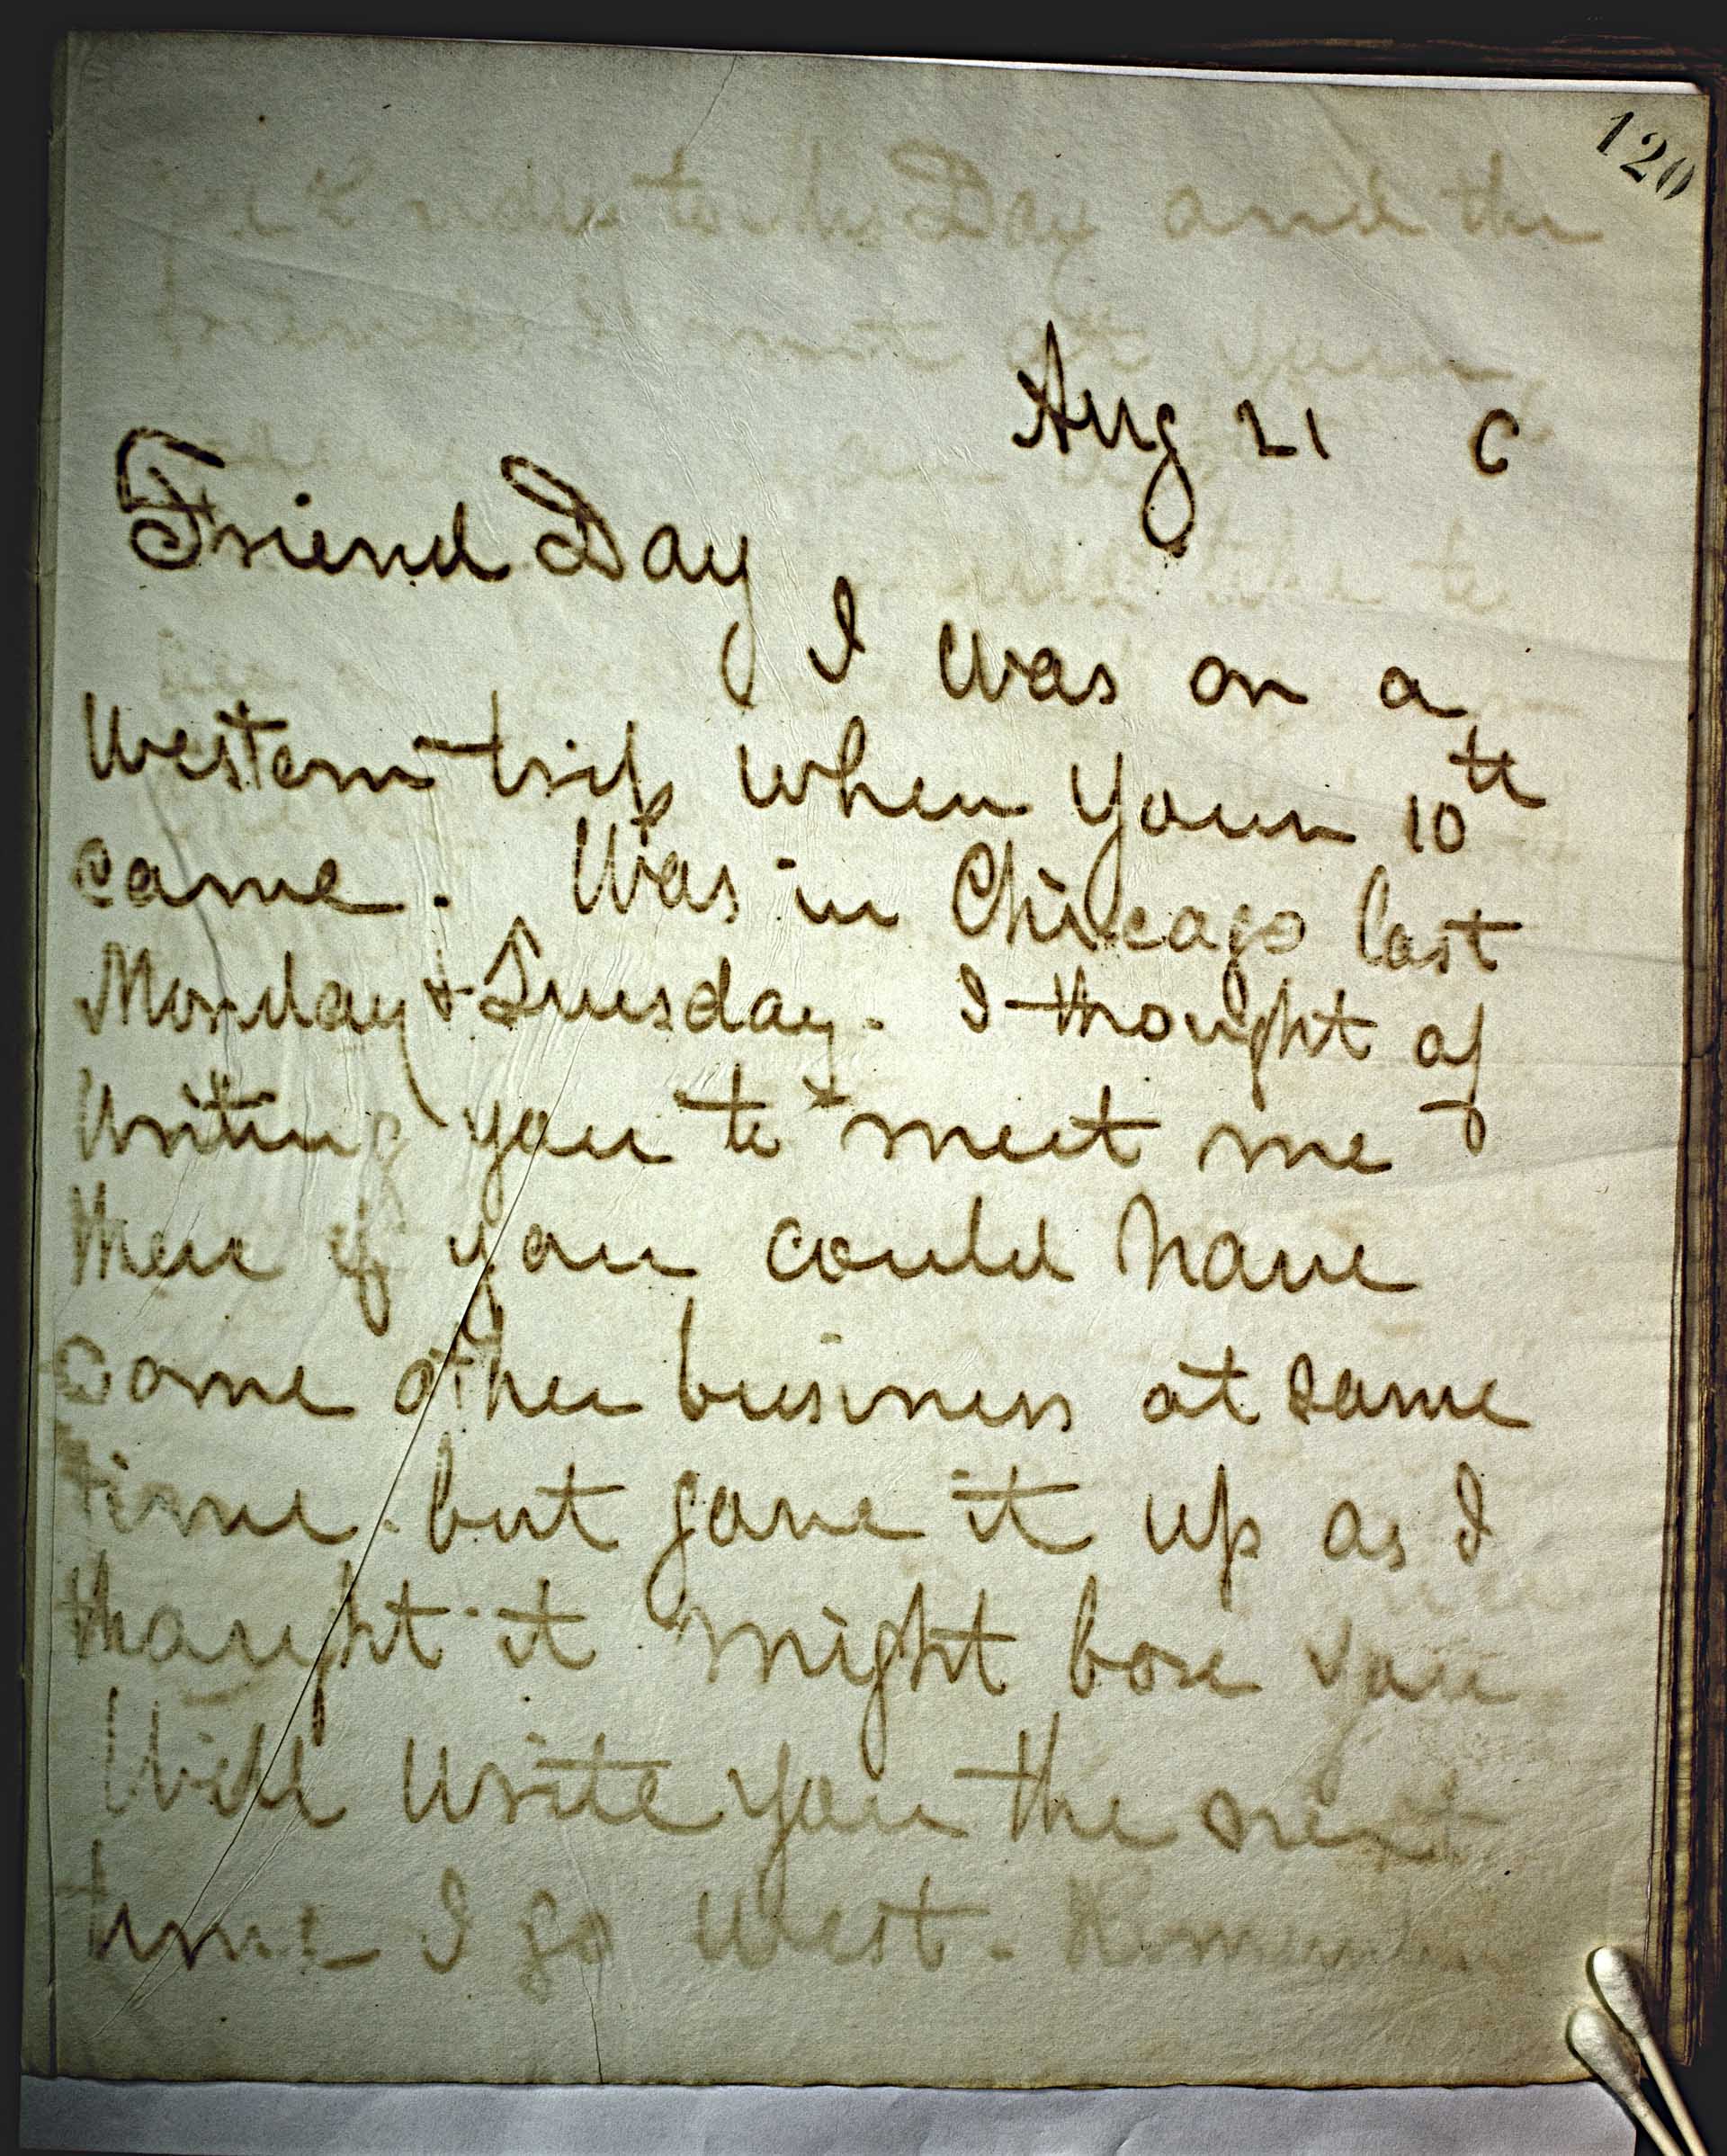 120
Aug 21 6
Friend Day
I was on a
Western trip when your 10th
came. Was in Chicago last
Monday & Tuesday. I thought of
writing you to meet me
there if you could have
some other business at same
time. but gave it up as I
thought it might bore you
Will write you the next
time I go west. Remember